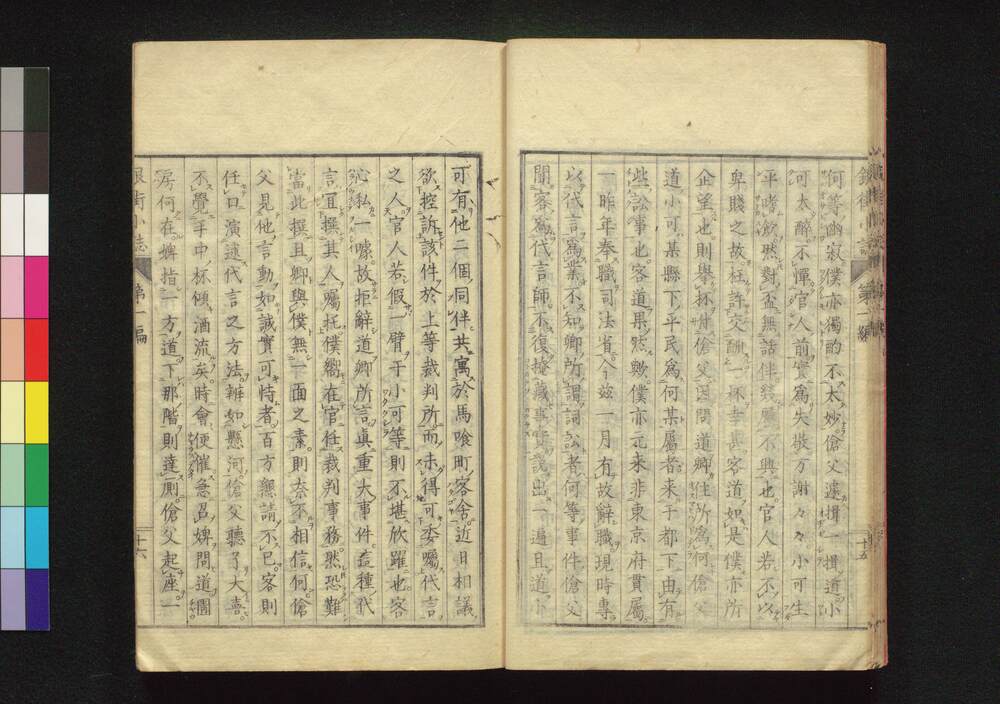 何等幽寂僕亦獨酌不太妙傖父遽揖一揖道小
可太醉不憚官人前實爲失敬万謝々々小可生
平嗜飲然對盃無話伴幾屬不興也官人若不以
卑賤之故枉許交酬一杯幸甚客道如是僕亦所
企望也則擧杯付傖父因問道卿住所爲何傖父
道小可某縣下平民爲何某屬者来于都下由有
些訟事也客道果然歟僕亦元来非東京府貫屬
一昨年奉職司法省今茲一月有故辭職現時專
以代言爲業不知卿所謂詞訟者何等事件傖父
聞客爲代言師不復掩藏事實說出一遍且道小
可有他二個同伴共寓於馬喰町客舎近日相議
欲控訴該件於上等裁判所而未得可委囑代言
之人官人若假一臂于小可等則不堪欣躍也客
沁私一噱故拒辭道卿所言眞重大事件這種代
言宜撰其人囑托僕嚮在官任裁判事務然恐難
當此撰且卿與僕無一面之素則奈不相信何傖
父見他言動如誠實可恃者百方懇請不已客則
任口演述代言之方法辨如懸河傖父聽了大喜
不覺手中杯傾酒流矣時會便催急呂婢問道圊
房何在婢指一方道下那階則達厠傖父起座一
銀街小誌
第一編
十五
十六